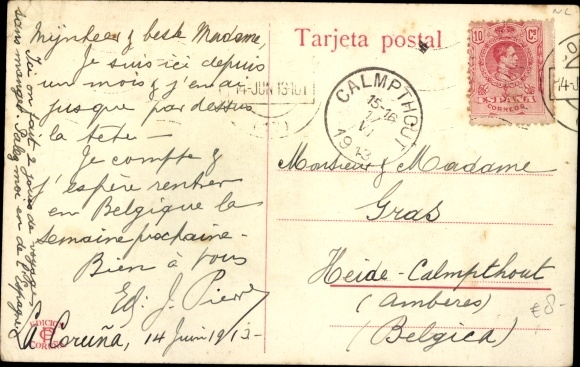 Tarjeta postal
Mijnheer & beste Madame,
Je suis ici depuis
un mois & j'en ai
jusque par dessus
la tête —
Je compte &
j'espère rentrer
en Belgique la
semaine prochaine —
Bien à vous
Ed: J. Pierre
La Coruña, 14 Juin 1913 —
Ici on fait 2 jours de voyage
sans manger. Parlez moi en de
14-JUN 13
CALMPTHOUT
15-16
17
VI
1913
10 Cs
ESPAÑA
CORREOS
Monsieur & Madame
Gras
Heide-Calmpthout
(Amberes)
(Belgica)
NL
€8-